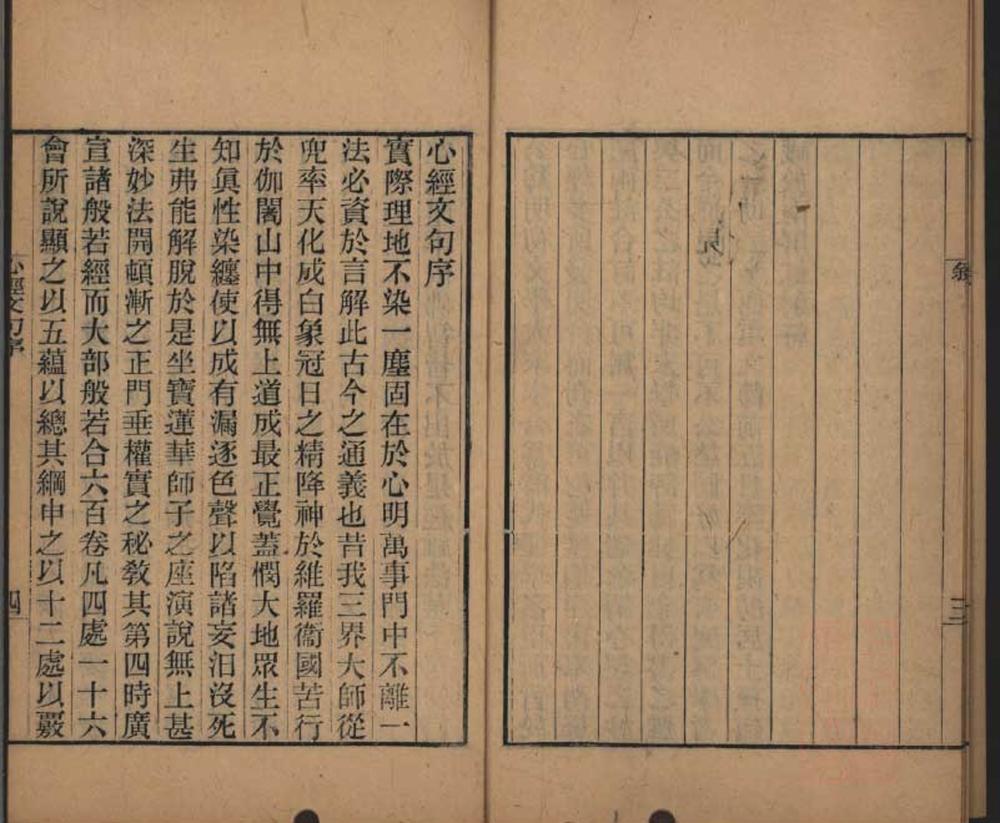 叙
三
心經文句序
實際理地不染一塵固在於心明萬事門中不離一
法必資於言解此古今之通義也昔我三界大師從
兜率天化成白象冠日之精降神於維羅衞國苦行
於伽闍山中得無上道成最正覺蓋憫大地眾生不
知眞性染纏使以成有漏逐色聲以陷諸妄汨沒死
生弗能解脫於是坐寶蓮華師子之座演說無上甚
深妙法開頓漸之正門垂權實之秘敎其第四時廣
宣諸般若經而大部般若合六百卷凡四處一十六
會所說顯之以五蘊以總其綱申之以十二處以覈
心經文句序
四